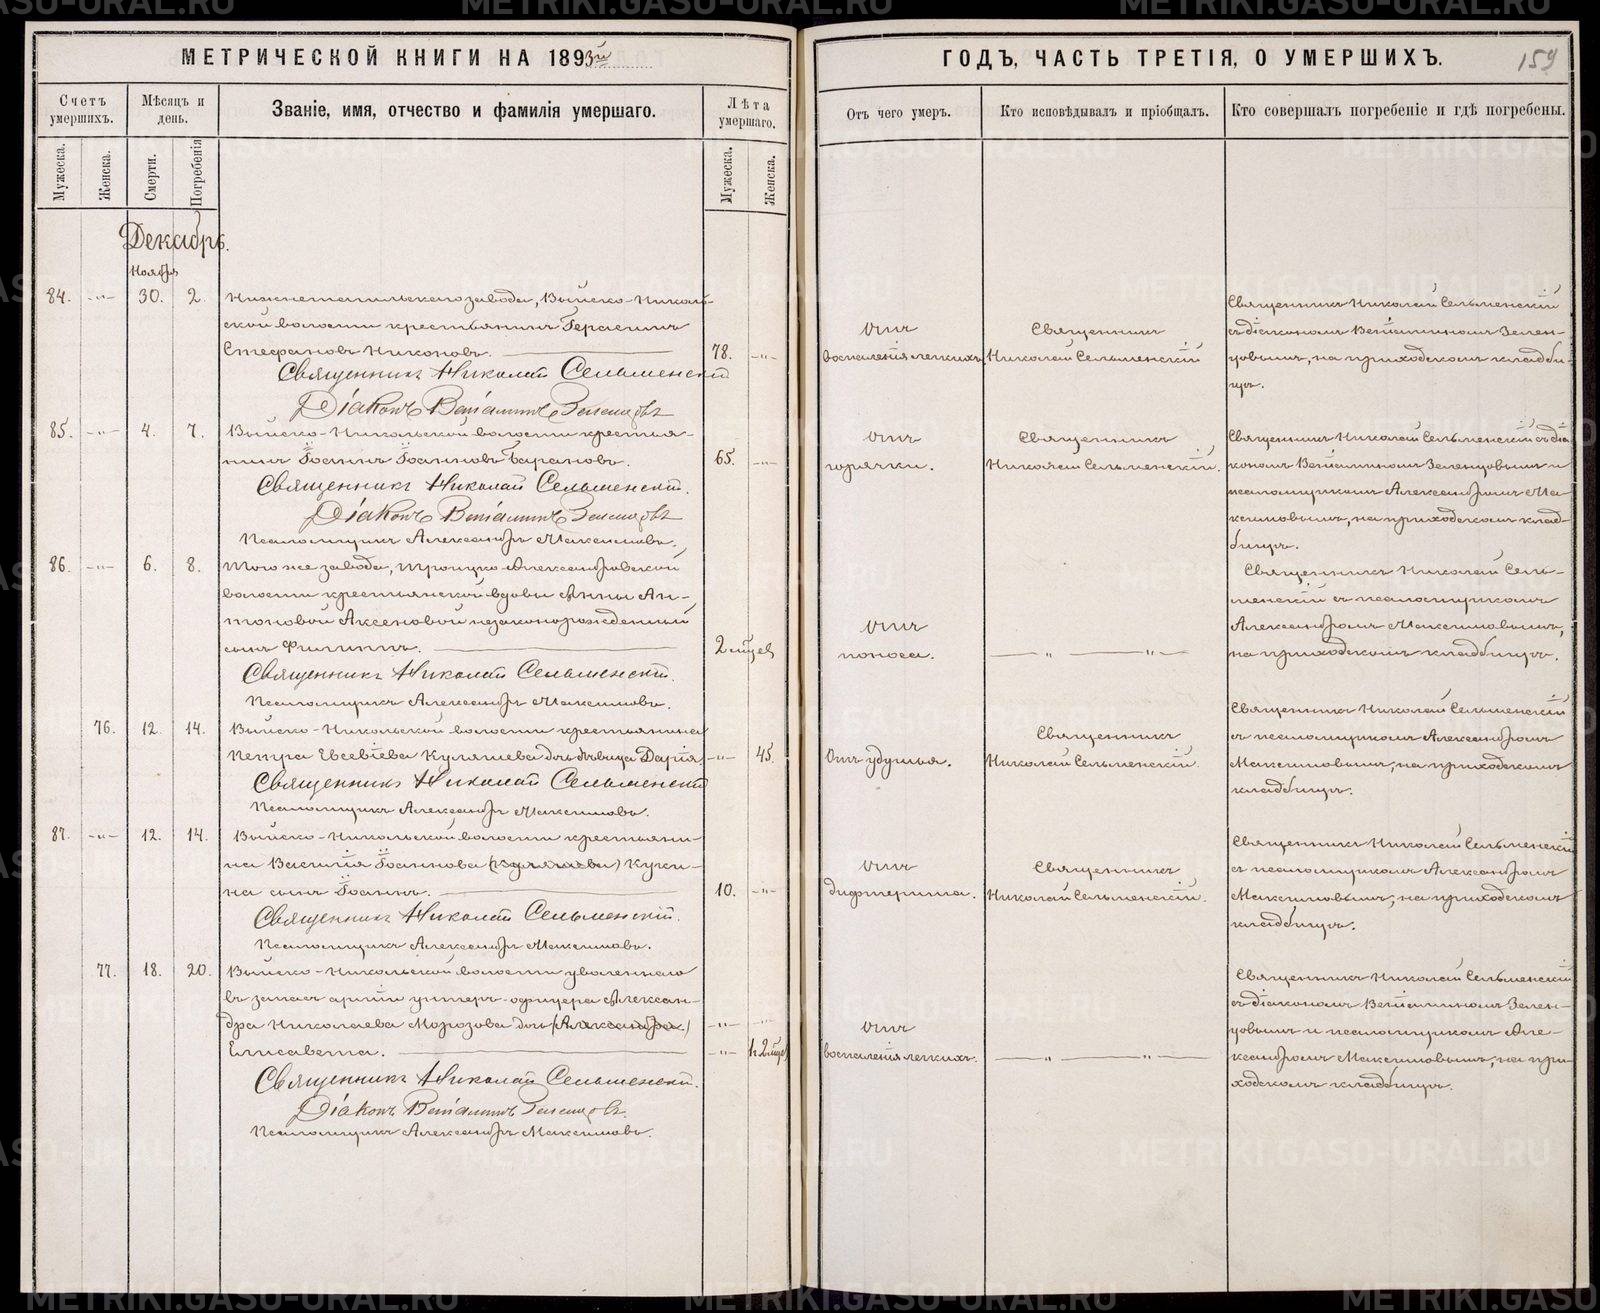 МЕТРИЧЕСКОЙ КНИГИ НА 1893й
ГОДЪ, ЧАСТЬ ТРЕТІЯ, О УМЕРШИХЪ.
159
Счетъ умершихъ.
Мѣсяцъ и день.
Званіе, имя, отчество и фамилія умершаго.
Лѣта умершаго.
Отъ чего умеръ.
Кто исповѣдывалъ и пріобщалъ.
Кто совершалъ погребеніе и гдѣ погребены.
Мужеска.
Женска.
Смерти.
Погребенія
Мужеска.
Женска.
Декабрь.
Ноября
84. -"- 30. 2.
Нижнетагильскаго завода, Выйско-Николь-
ской волости крестьянинъ Герасимъ
Стефановъ Никоновъ.
78. -"-
Священникъ Николай Сельменскій
Діаконъ Веніаминъ Зеленцовъ
Отъ
воспаленія легкихъ.
Священникъ
Николай Сельменскій
Священникъ Николай Сельменскій
съ діакономъ Веніаминомъ Зелен-
цовымъ, на приходскомъ кладби-
щѣ.
85. -"- 4. 7.
Выйско-Никольской волости крестья-
нинъ Іоаннъ Іоанновъ Барановъ.
65. -"-
Священникъ Николай Сельменскій.
Діаконъ Веніаминъ Зеленцовъ
Псаломщикъ Александръ Максимовъ.
Отъ
горячки.
Священникъ
Николай Сельменскій.
Священникъ Николай Сельменскій съ діа
кономъ Веніаминомъ Зеленцовымъ и
псаломщикомъ Александромъ Ма
ксимовымъ, на приходскомъ клад-
бищѣ.
86. -"- 6. 8.
Того же завода, Троицко-Александровской
волости крестьянской вдовы Анны Ан-
тоновой Аксеновой незаконорожденный
сынъ Филиппъ.
2 мѣцев
Священникъ Николай Сельменскій.
Псаломщикъ Александръ Максимовъ.
Отъ
поноса.
— " — " —
Священникъ Николай Сель-
менскій съ псаломщикомъ
Александромъ Максимовымъ,
на приходскомъ кладбищѣ.
76. 12. 14.
Выйско-Никольской волости крестьянина
Петра Евсевіева Куляшева дочь дѣвица Дарія
-"- 45.
Священникъ Николай Сельменскій
Псаломщикъ Александръ Максимовъ.
Отъ удушья.
Священникъ
Николай Сельменскій.
Священникъ Николай Сельменскій
съ псаломщикомъ Александромъ
Максимовымъ, на приходскомъ
кладбищѣ.
87. -"- 12. 14.
Выйско-Никольской волости крестьяни-
на Василія Іоаннова (Куляшева) Куки-
на сынъ Іоаннъ.
10. -"-
Священникъ Николай Сельменскій.
Псаломщикъ Александръ Максимовъ.
Отъ
дифтерита.
Священникъ
Николай Сельменскій.
Священникъ Николай Сельменскій
съ псаломщикомъ Александромъ
Максимовымъ, на приходскомъ
кладбищѣ.
77. 18. 20.
Выйско-Никольской волости уволеннаго
въ запасъ арміи унтеръ-офицера Алексан-
дра Николаева Морозова дочь (Александра)
Елисавета.
-"-
Священникъ Николай Сельменскій.
Діаконъ Веніаминъ Зеленцовъ.
Псаломщикъ Александръ Максимовъ.
Отъ
воспаленія легкихъ.
— " — " —
Священникъ Николай Сельменскій
съ діакономъ Веніаминомъ Зелен-
цовымъ и псаломщикомъ Але-
ксандромъ Максимовымъ, на при-
ходскомъ кладбищѣ.
METRIKI.GASO-URAL.RU